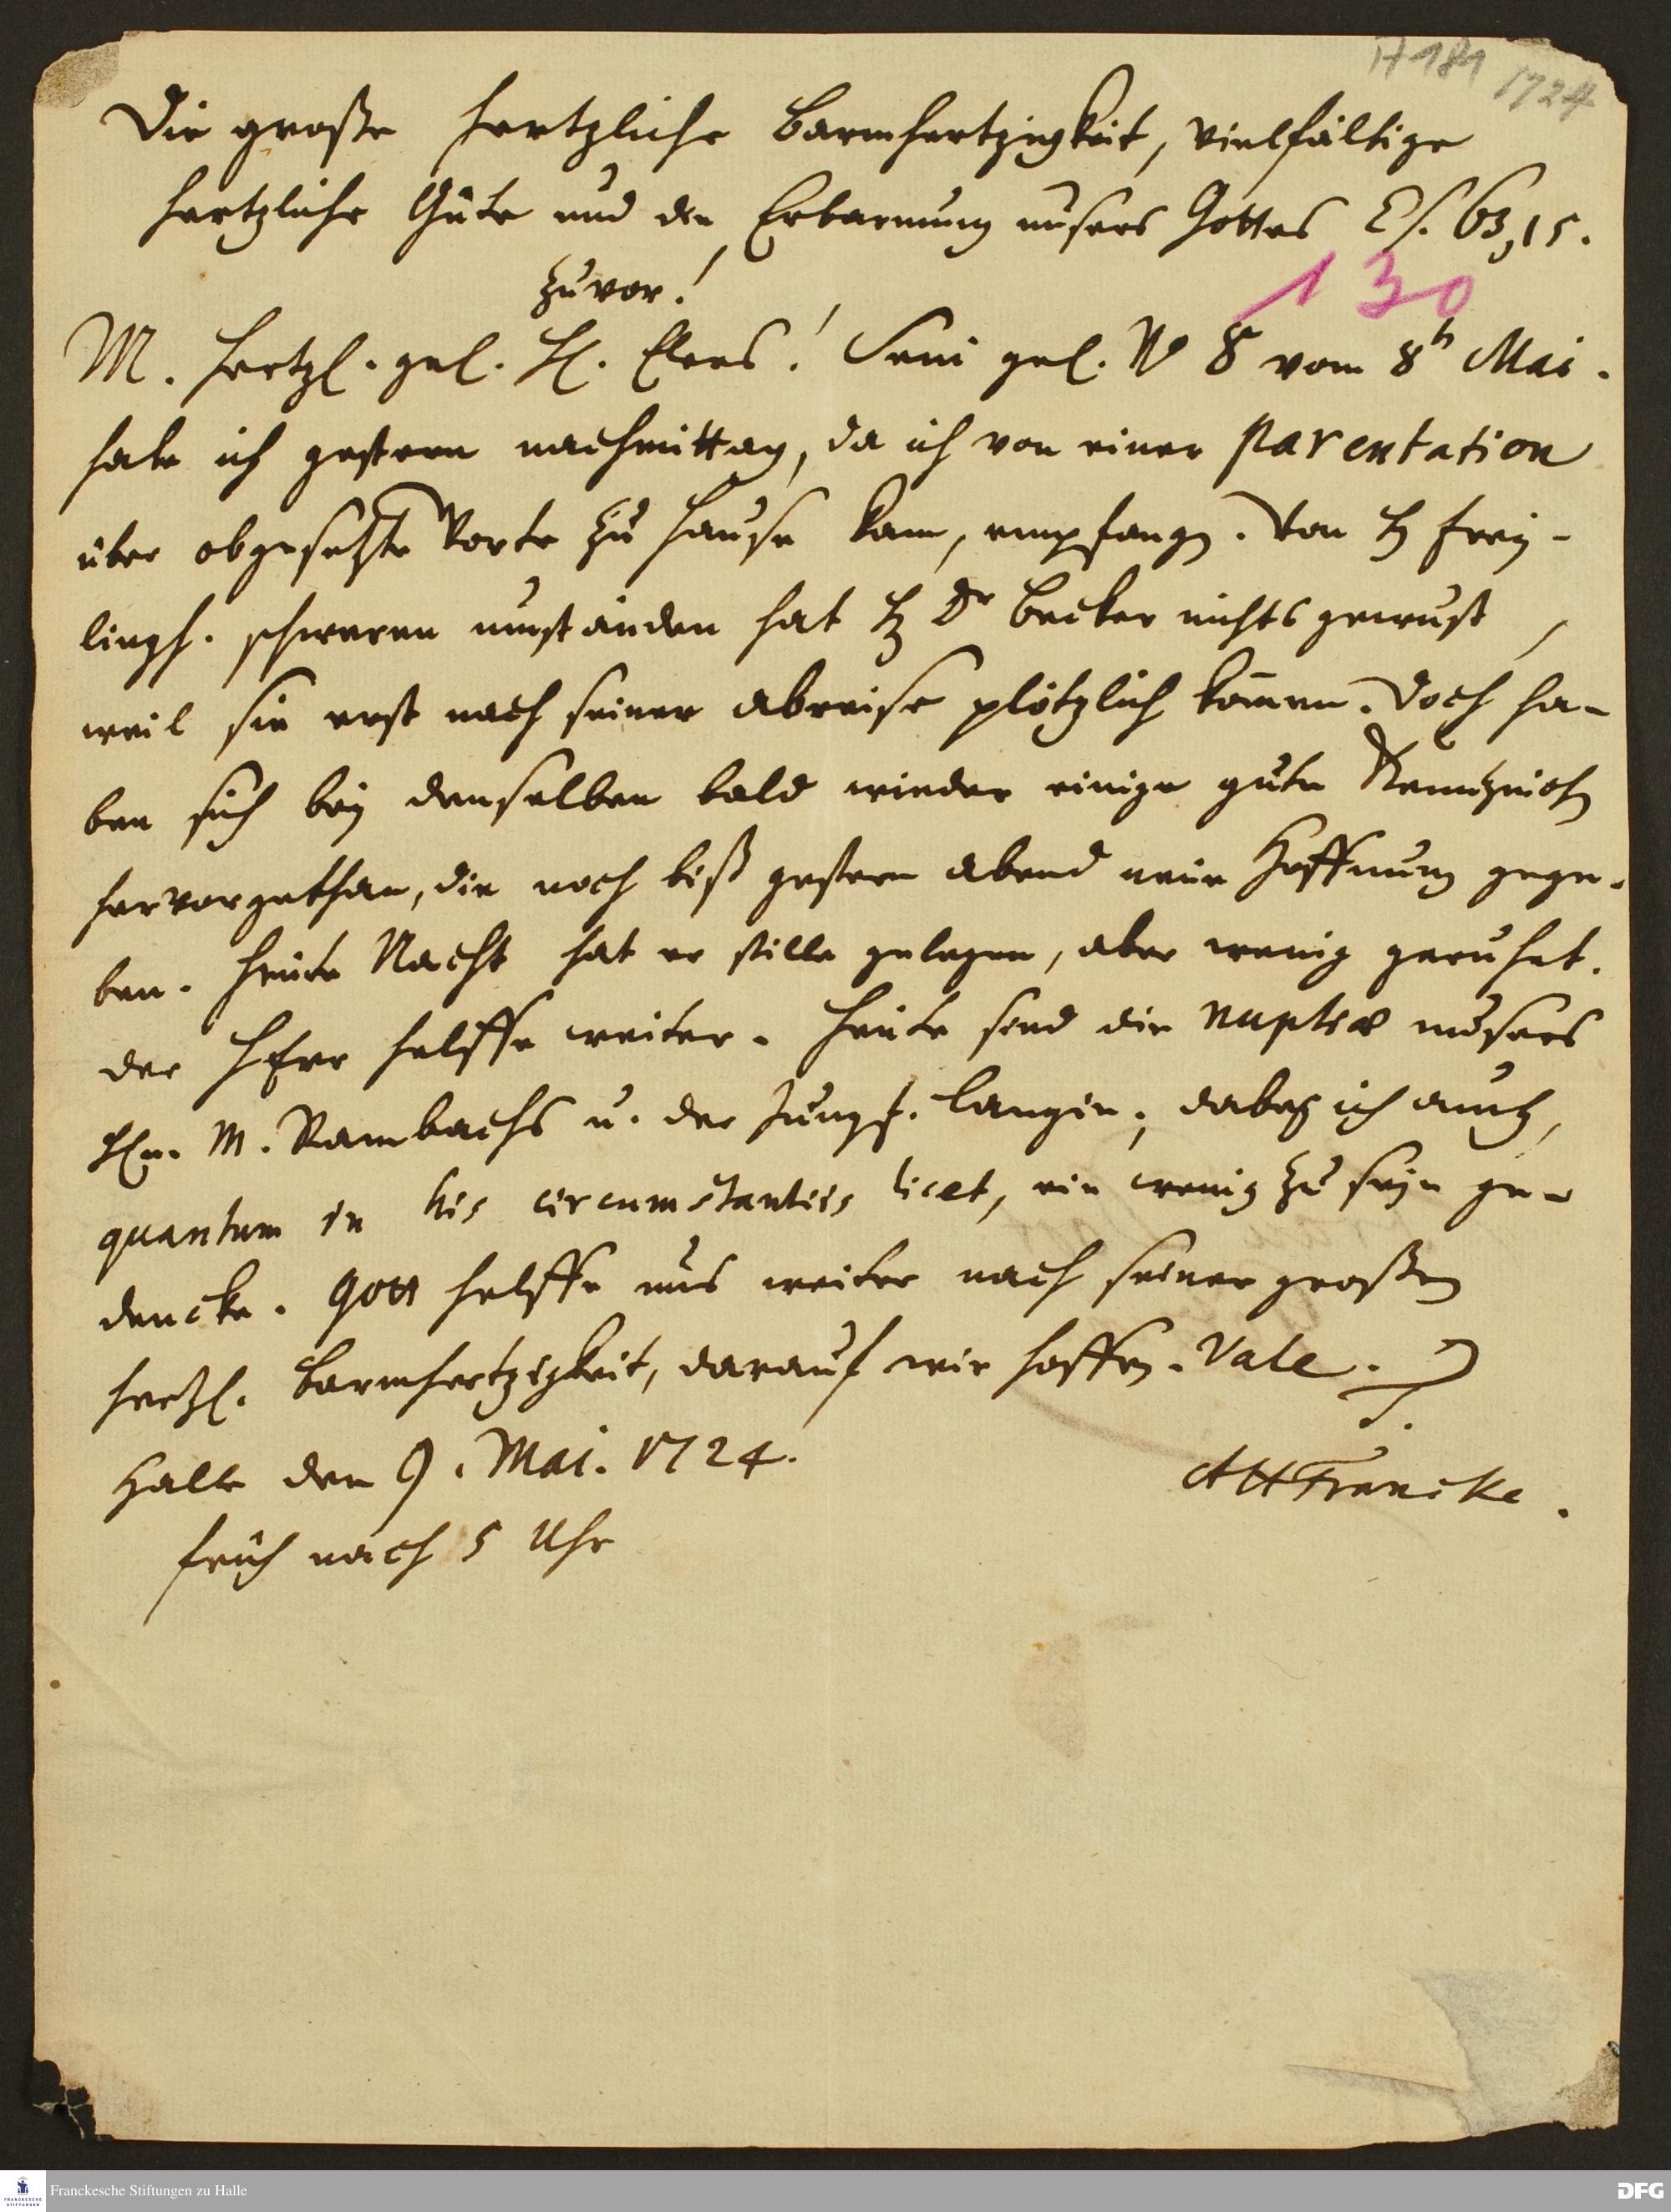 A 181 1724
Die große hertzliche Barmhertzigkeit, vielfältige
hertzliche Güte und die Erbarmung unsers Gottes Es. 63,15.
zuvor!
130
M. hertzl. gel. H. Elers! Sein gel. N 8 vom 8h Mai.
habe ich gestern nachmittag, da ich von einer parentation
über obgesetzte Worte zu Hause kam, empfangen. Von H Frey-
lingh. schweren umständen hat H Dr Becker nichts gewust,
weil sie erst nach seiner abreise plötzlich kommen. Doch ha-
ben sich bey denselben bald wieder einige gute Kennzeichen
hervorgethan, die noch biß gestern abend neue Hoffnung gege-
ben. Heute Nacht hat er stille gelegen, aber wenig geruhet.
der HErr helffe weiter. Heute sind die nuptiæ unsers
Hn. M. Rambachs u. der Jungf. Langin; dabey ich auch,
quantum in his circumstantiis licet, ein wenig zu seyn ge-
dencke. Gott helffe uns weiter nach seiner großen
hertzl. Barmhertzigkeit, darauf wir hoffen. Vale.
T.
Halle den 9. Mai. 1724.
AHFrancke.
früh nach 5 Uhr
Franckesche Stiftungen zu Halle
FRANCKESCHE STIFTUNGEN
DFG